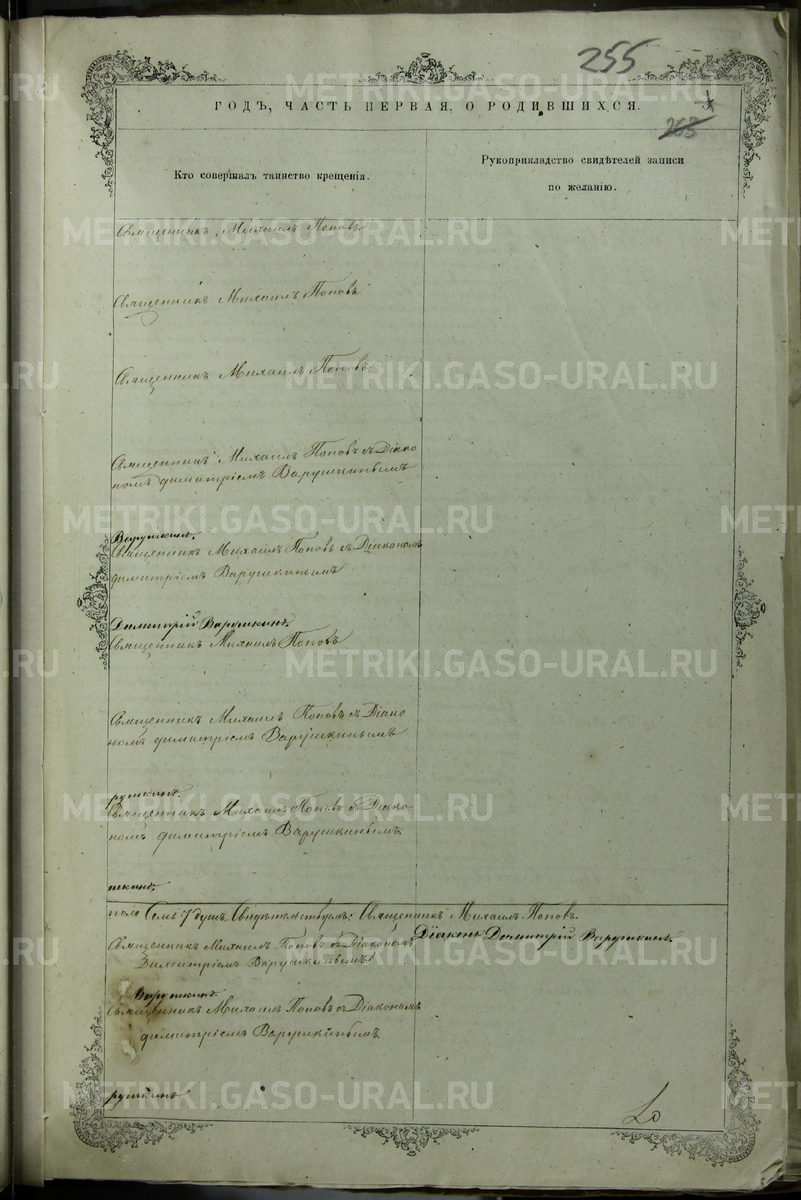 255
ГОДЪ, ЧАСТЬ ПЕРВАЯ, О РОДИВШИХСЯ.
263
Кто совершалъ таинство крещенія.
Рукоприкладство свидѣтелей записи
по желанію.
Священникъ Михаилъ Поповъ
Священникъ Михаилъ Поповъ
Священникъ Михаилъ Поповъ
Священникъ Михаилъ Поповъ съ Діако
номъ Димитріемъ Варушкинымъ
Варушкинъ.
Священникъ Михаилъ Поповъ съ Діакономъ
Димитріемъ Варушкинымъ
Димитрій Варушкинъ.
Священникъ Михаилъ Поповъ
Священникъ Михаилъ Поповъ съ Діако
номъ Димитріемъ Варушкинымъ
рушкинъ.
Священникъ Михаилъ Поповъ съ Діако-
номъ Димитріемъ Варушкинымъ.
шкинъ.
пола семь 7 душъ. Свидѣтельствуемъ: Священникъ Михаилъ Поповъ.
Діаконъ Димитрій Варушкинъ.
Священникъ Михаилъ Поповъ съ Діакономъ
Димитріемъ Варушкинымъ
Варушкинъ.
Священникъ Михаилъ Поповъ съ Діакономъ
Димитріемъ Варушкинымъ.
рушкинъ
METRIKI.GASO-URAL.RU